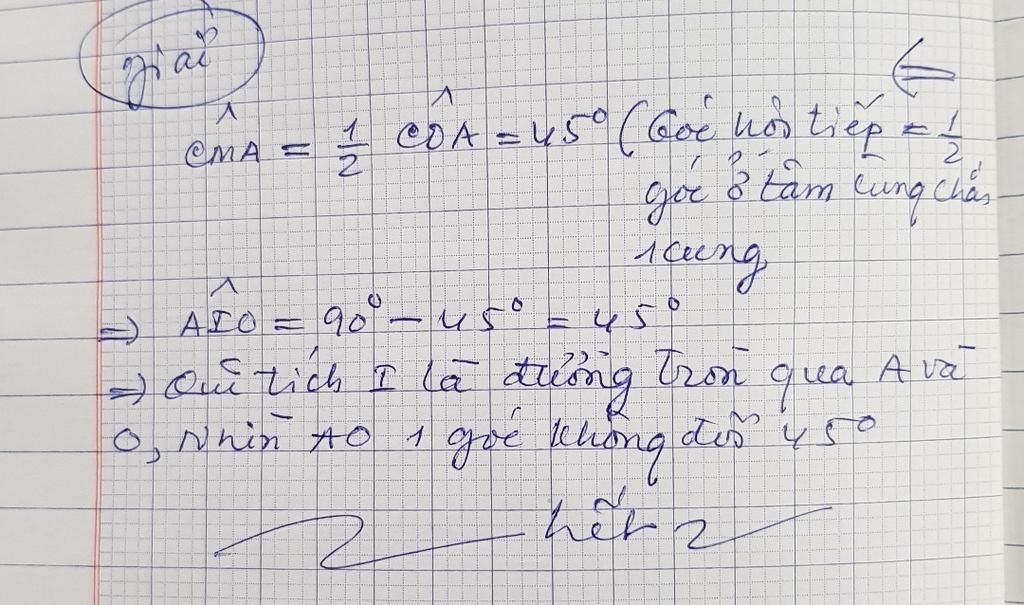 giải
CMA = 1/2 COA = 45° (Góc nội tiếp = 1/2
góc ở tâm cùng chắn
1 cung
=> AIO = 90° - 45° = 45°
=> Quĩ tích I là đường tròn qua A và
O, nhìn AO 1 góc không đổi 45°
hết